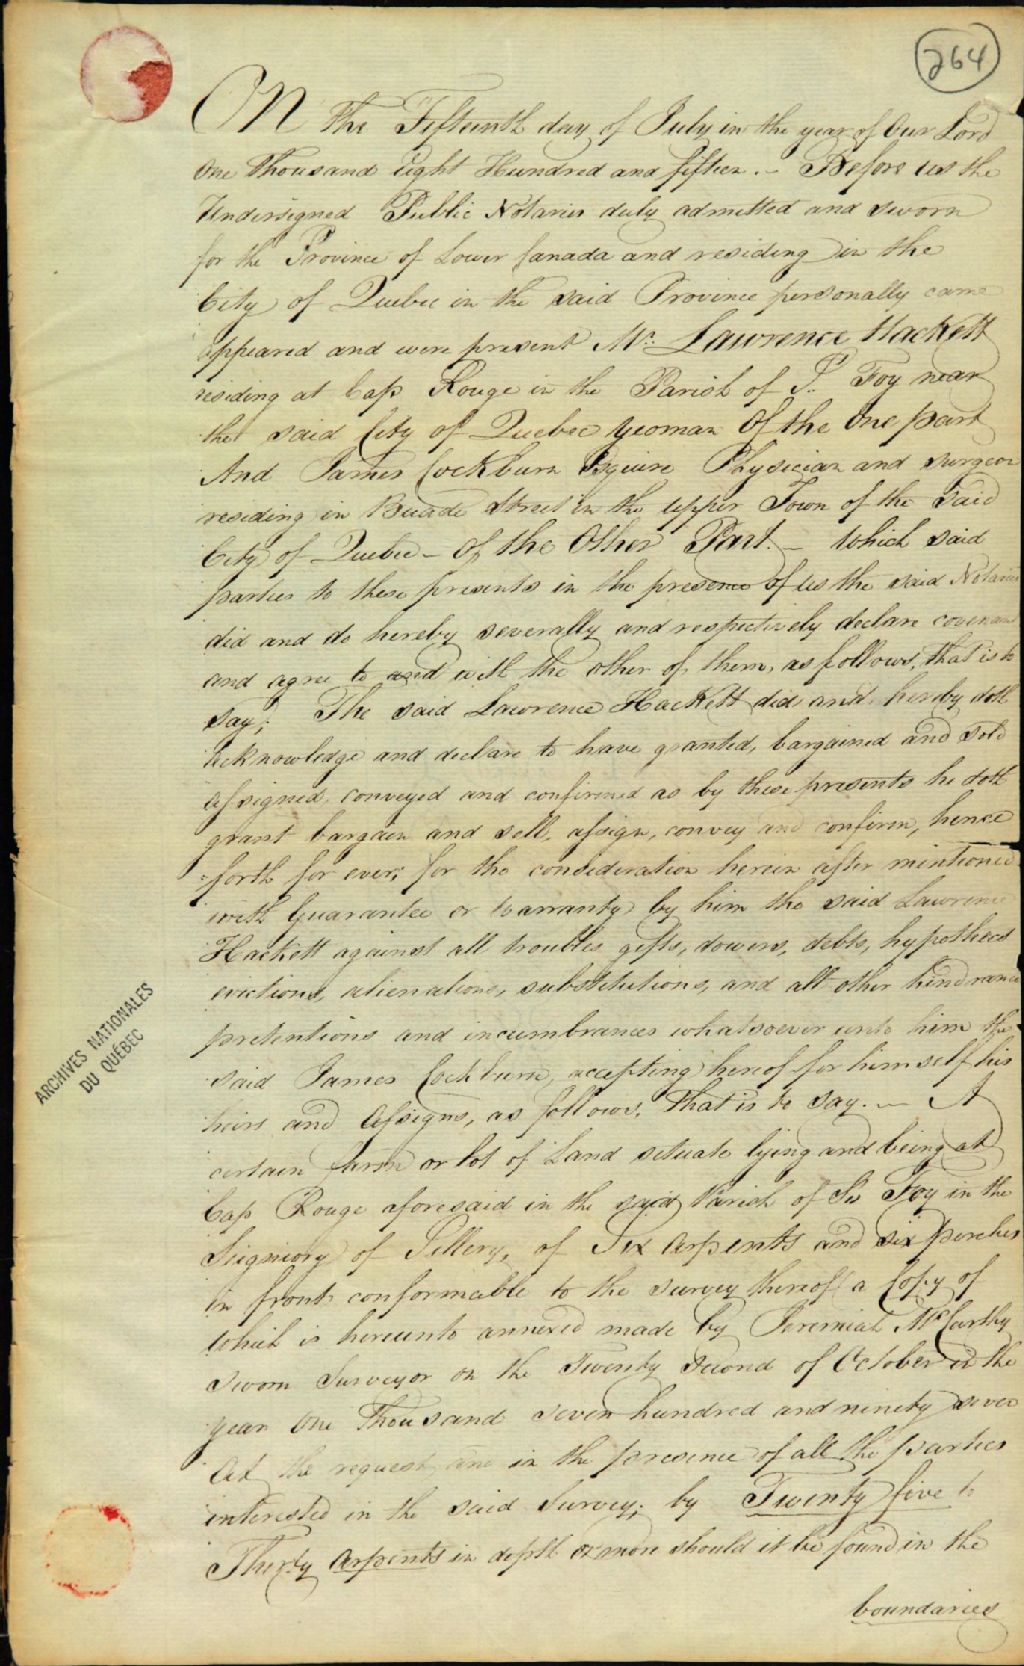 264
On the Fifteenth day of July in the year of Our Lord
One thousand Eight Hundred and fifteen. - Before us the
Undersigned Public Notaries duly admitted and sworn
for the Province of Lower Canada and residing in the
City of Quebec in the said Province personally came
appeared and were present Mr. Lawrence Hackett
residing at Cap Rouge in the Parish of St. Foy near
the said City of Quebec yeoman Of the One part
And James Cockburn Esquire Physician and Surgeon
residing in Buade Street in the upper Town of the said
City of Quebec - Of the Other Part. - Which said
parties to these presents in the presence of us the said Notaries
did and do hereby severally and respectively declare covenant
and agree to and with the other of them, as follows, that is to
say; The said Lawrence Hackett did and hereby doth
acknowledge and declare to have granted, bargained and sold
assigned, conveyed and confirmed as by these presents he doth
grant bargain and sell, assign, convey and confirm, hence
=forth for ever; for the consideration herein after mentioned
with Guarantee or Warranty by him the said Lawrence
Hackett against all troubles, gifts, dowers, debts, hypotheces
evictions, alienations, substitutions, and all other hindrances
pretentions and incumbrances whatsoever unto him the
said James Cockburn, accepting hereof for himself his
heirs and Assigns, as follows, that is to say. - A
certain farm or lot of Land situate lying and being at
Cap Rouge aforesaid in the said Parish of St Foy in the
Seigniory of Sillery, of Six Arpents and six perches
in front conformable to the survey thereof (a Copy of
which is hereunto annexed made by Jeremiah McCarthy
sworn Surveyor on the Twenty second of October in the
year One Thousand seven hundred and ninety seven
At the request and in the presence of all the parties
interested in the said Survey; by Twenty five to
Thirty Arpents in depth or more should it be found in the
boundaries
ARCHIVES NATIONALES
DU QUÉBEC